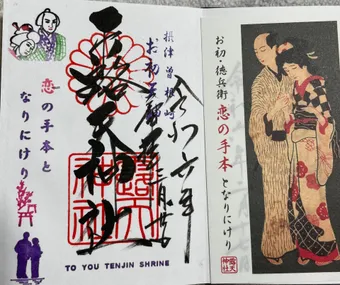 お初・徳兵衛 恋の手本となりにけり
露天
神社
摂津 曽根崎
お初天神
令和六年
露天神社
恋の手本と
なりにけり
TO YOU TENJIN SHRINE